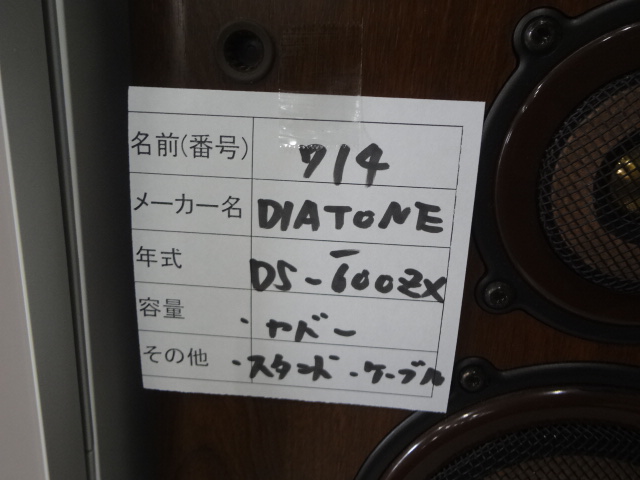 名前(番号) 714
メーカー名 DIATONE
年式 DS-600ZX
容量 ・カバー
その他 ・スタンド ・ケーブル